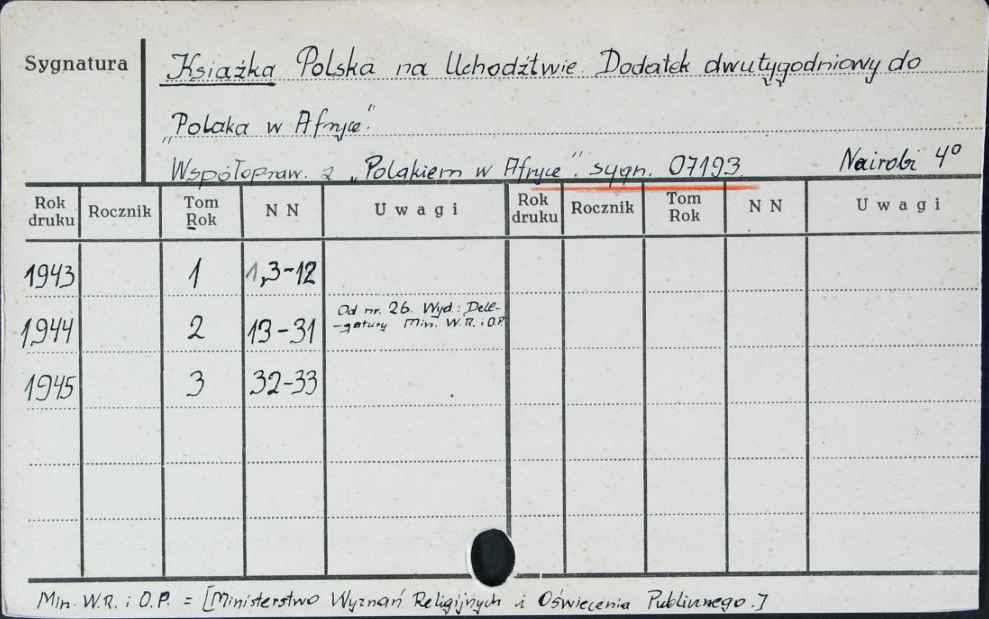 Sygnatura
Książka Polska na Uchodźtwie. Dodatek dwutygodniowy do
„Polaka w Afryce."
Współopraw. z „Polakiem w Afryce". sygn. 07193.
Nairobi 4°
Rok druku Rocznik Tom Rok N N Uwagi Rok druku Rocznik Tom Rok N N Uwagi
1943 1 1,3-12
1944 2 13-31 Od nr. 26. Wyd.: Dele-
-gatury Min. W.R. i O.P.
1945 3 32-33
Min. W.R. i O.P. = [Ministerstwo Wyznań Religijnych i Oświecenia Publicznego.]